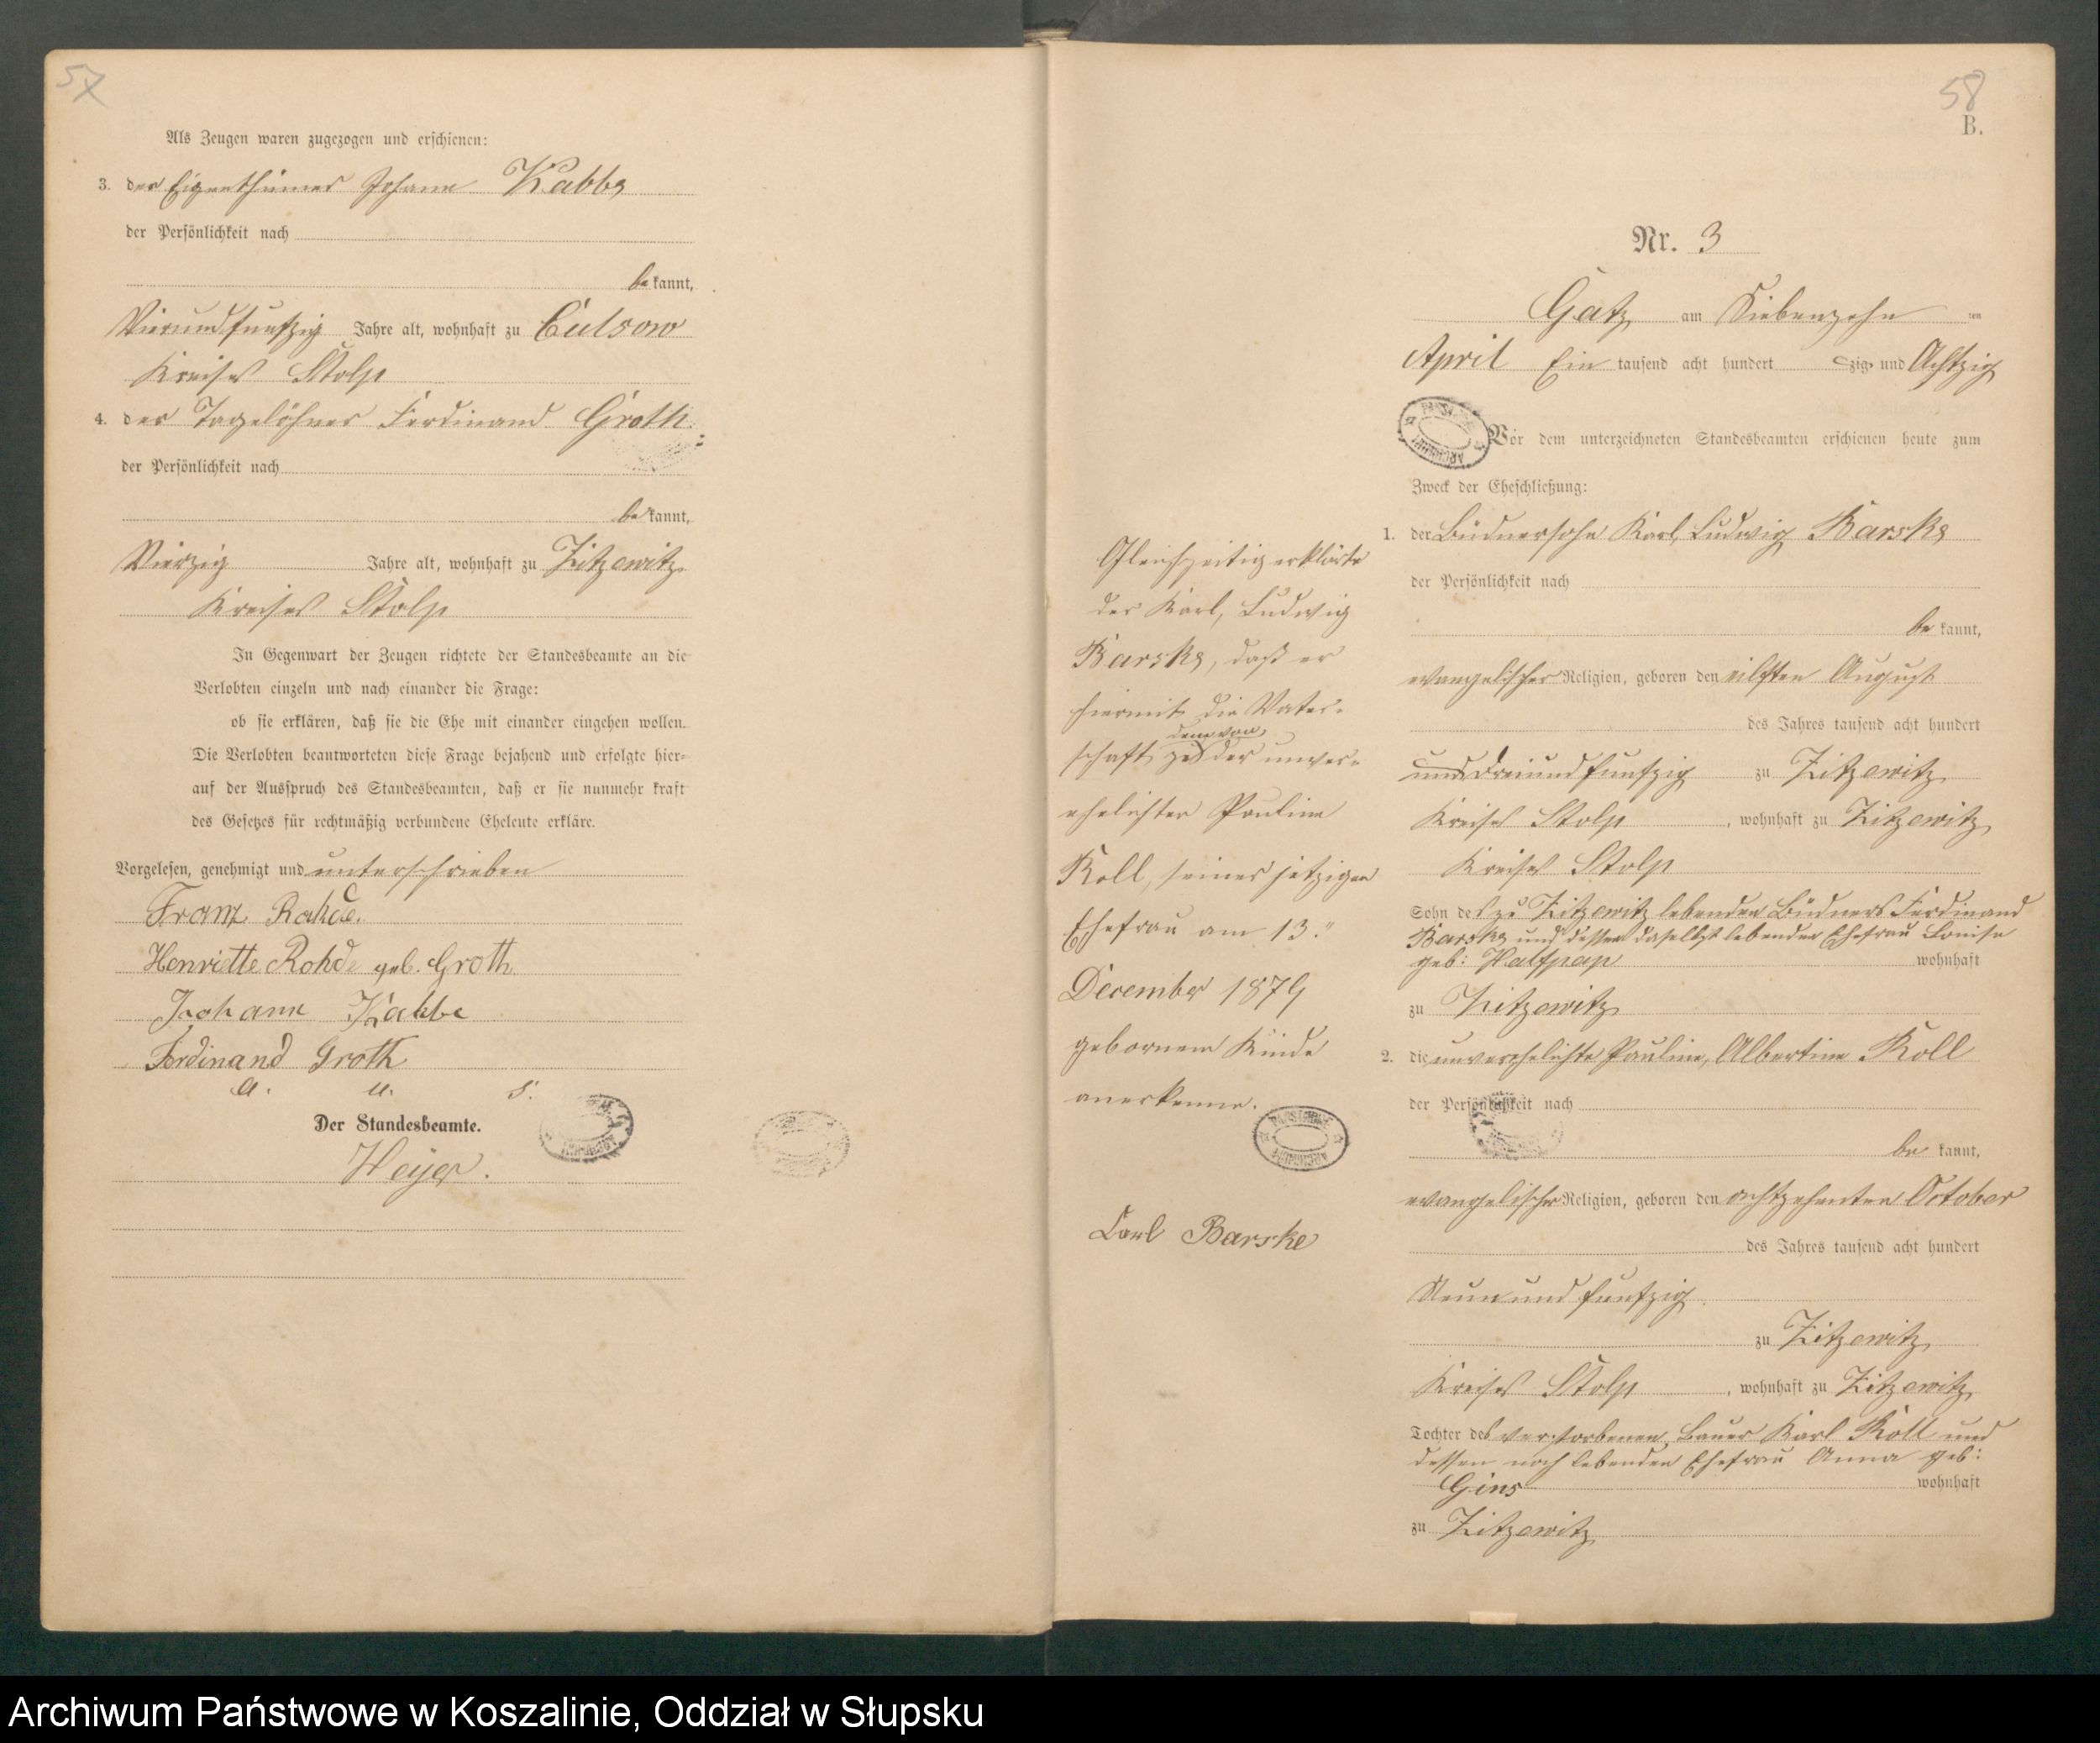 57
Als Zeugen waren zugezogen und erschienen:
3. der Eigenthümer Johann Kabbe
der Persönlichkeit nach
be kannt,
Vierundfunfzig Jahre alt, wohnhaft zu Culsow
Kreises Stolp
4. der Tagelöhner Ferdinand Groth
der Persönlichkeit nach
be kannt,
Vierzig Jahre alt, wohnhaft zu Zitzewitz
Kreises Stolp
In Gegenwart der Zeugen richtete der Standesbeamte an die
Verlobten einzeln und nach einander die Frage:
ob sie erklären, daß sie die Ehe mit einander eingehen wollen.
Die Verlobten beantworteten diese Frage bejahend und erfolgte hier-
auf der Ausspruch des Standesbeamten, daß er sie nunmehr kraft
des Gesetzes für rechtmäßig verbundene Eheleute erkläre.
Vorgelesen, genehmigt und unterschrieben
Franz Rohde.
Henriette Rohde geb. Groth
Johann Kabbe
Ferdinand Groth
a. u. s.
Der Standesbeamte.
Heyer.
58
B.
Nr. 3
Gatz am Siebenzehn ten
April Ein tausend acht hundert zig und Achtzig
Vor dem unterzeichneten Standesbeamten erschienen heute zum
Zweck der Eheschließung:
1. der Büdnersohn Karl, Ludwig Barske
der Persönlichkeit nach
be kannt,
evangelischer Religion, geboren den eilften August
des Jahres tausend acht hundert
und dreiundfunfzig zu Zitzewitz
Kreises Stolp, wohnhaft zu Zitzewitz
Kreises Stolp
Sohn des zu Zitzewitz lebenden Büdners Ferdinand
Barske und dessen daselbst lebenden Ehefrau Louise
geb: Halfpap wohnhaft
zu Zitzewitz
2. die unverehelichte Pauline, Albertine Koll
der Persönlichkeit nach
be kannt,
evangelischer Religion, geboren den achtzehnten October
des Jahres tausend acht hundert
Neunundfunfzig
zu Zitzewitz
Kreises Stolp, wohnhaft zu Zitzewitz
Tochter des verstorbenen Bauer Karl Koll und
dessen noch lebenden Ehefrau Anna geb:
Gins wohnhaft
zu Zitzewitz
Gleichzeitig erklärte
der Karl, Ludwig
Barske, daß er
hiermit die Vater-
dem von
schaft zu der unver-
ehelichten Pauline
Koll, seiner jetzigen
Ehefrau am 13."
December 1879
gebornem Kinde
anerkenne.
Carl Barske
Archiwum Państwowe w Koszalinie, Oddział w Słupsku